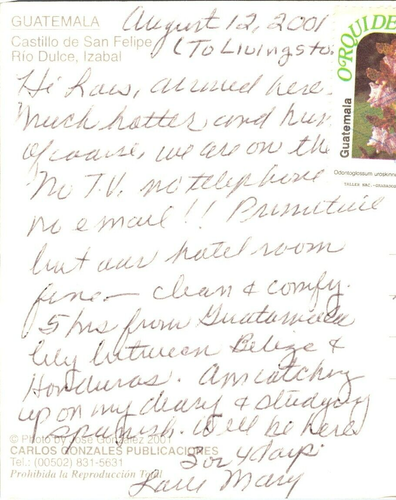 GUATEMALA
August 12, 2001
Castillo de San Felipe
Río Dulce, Izabal
(To Livingsto
Hi Law, arrived here
Much hotter and hum
of course, we are on the
No T.V. no telephone
no email!! Primitive
but our hotel room
fine — clean & comfy.
5 hrs from Guatamala
between Belize &
Honduras. Am catching
up on my diary & studying
Spanish. We'll be here
for 4 days.
Love Mary
© Photo by José González 2001
CARLOS GONZALES PUBLICACIONES
Tel.: (00502) 831-5631
Prohibida la Reproducción Total
ORQUIDE
Guatemala
Odontoglossum uroskinn